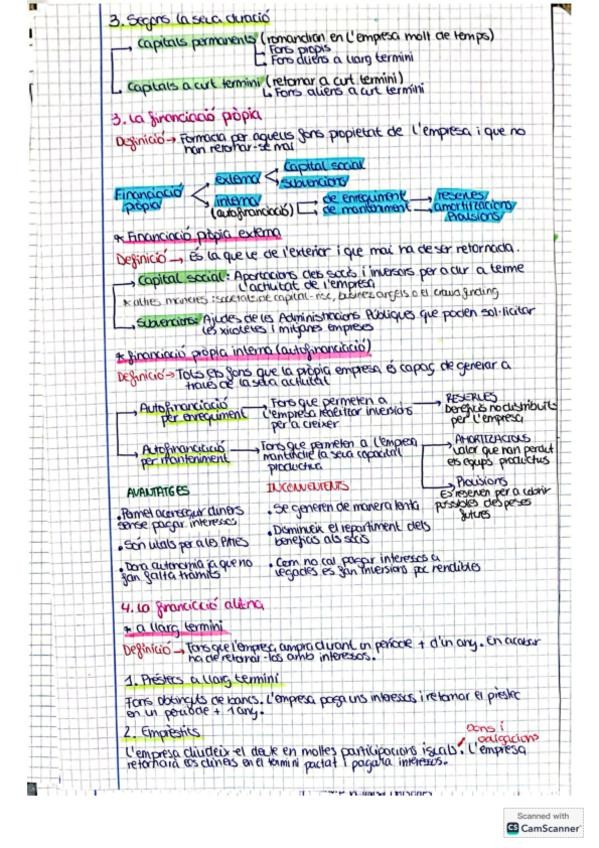 3. Segons la seua duració
Capitals permanents (romandran en l'empresa molt de temps)
Fons propis
Fons aliens a llarg termini
Capitals a curt termini (retornar a curt termini)
Fons aliens a curt termini
3. La financiació pròpia
Definició → Formada per aquells fons propietat de l'empresa i que no
han retornar-se mai
Financiació pròpia
externa
Capital social
subvencions
interna
(autofinanciació)
de enriquiment
de manteniment
reserves
amortitzacions
Provisions
* Financiació pròpia externa
Definició → És la que ve de l'exterior i que mai ha de ser retornada.
Capital social: Aportacions dels socis i inversors per a dur a terme
l'activitat de l'empresa
* altres maneres: societats de capital-risc, business angels o el crowdfunding
Subvencions: Ajudes de les Administracions Públiques que poden sol·licitar
les xicotetes i mitjanes empreses
* financiació pròpia interna (autofinanciació)
Definició → Tots els fons que la pròpia empresa és capaç de generar a
través de la seua activitat
Autofinanciació
per enriquiment
Fons que permeten a
l'empresa realitzar inversions
per a créixer
RESERVES
Beneficis no distribuits
per l'empresa
Autofinanciació
per manteniment
Fons que permeten a l'empresa
mantindre la seua capacitat
productiva
AMORTITZACIONS
Valor que han perdut
els equips productius
Provisions
Es reserven per a cobrir
possibles despeses
futures
AVANTATGES
• Permet aconseguir diners
sense pagar interessos
• Són vitals per a les PIMES
• Dona autonomia ja que no
fan falta tràmits
INCONVENIENTS
• Se generen de manera lenta
• Disminueix el repartiment dels
beneficis als socis
• Com no cal pagar interessos a
vegades es fan inversions poc rendibles
4. La financiació aliena
* a llarg termini
Definició → Fons que l'empresa durant un període + d'un any. En acabar
ha de retornar-los amb interessos.
1. Préstecs a llarg termini
Fons obtinguts de bancs. L'empresa paga uns interessos i retornar el préstec
en un període + 1 any.
2. Emprèstits
bons i
obligacions
L'empresa divideix el deute en moltes participacions iguals. L'empresa
retornarà els diners en el termini pactat i pagarà interessos.
Scanned with
CS CamScanner